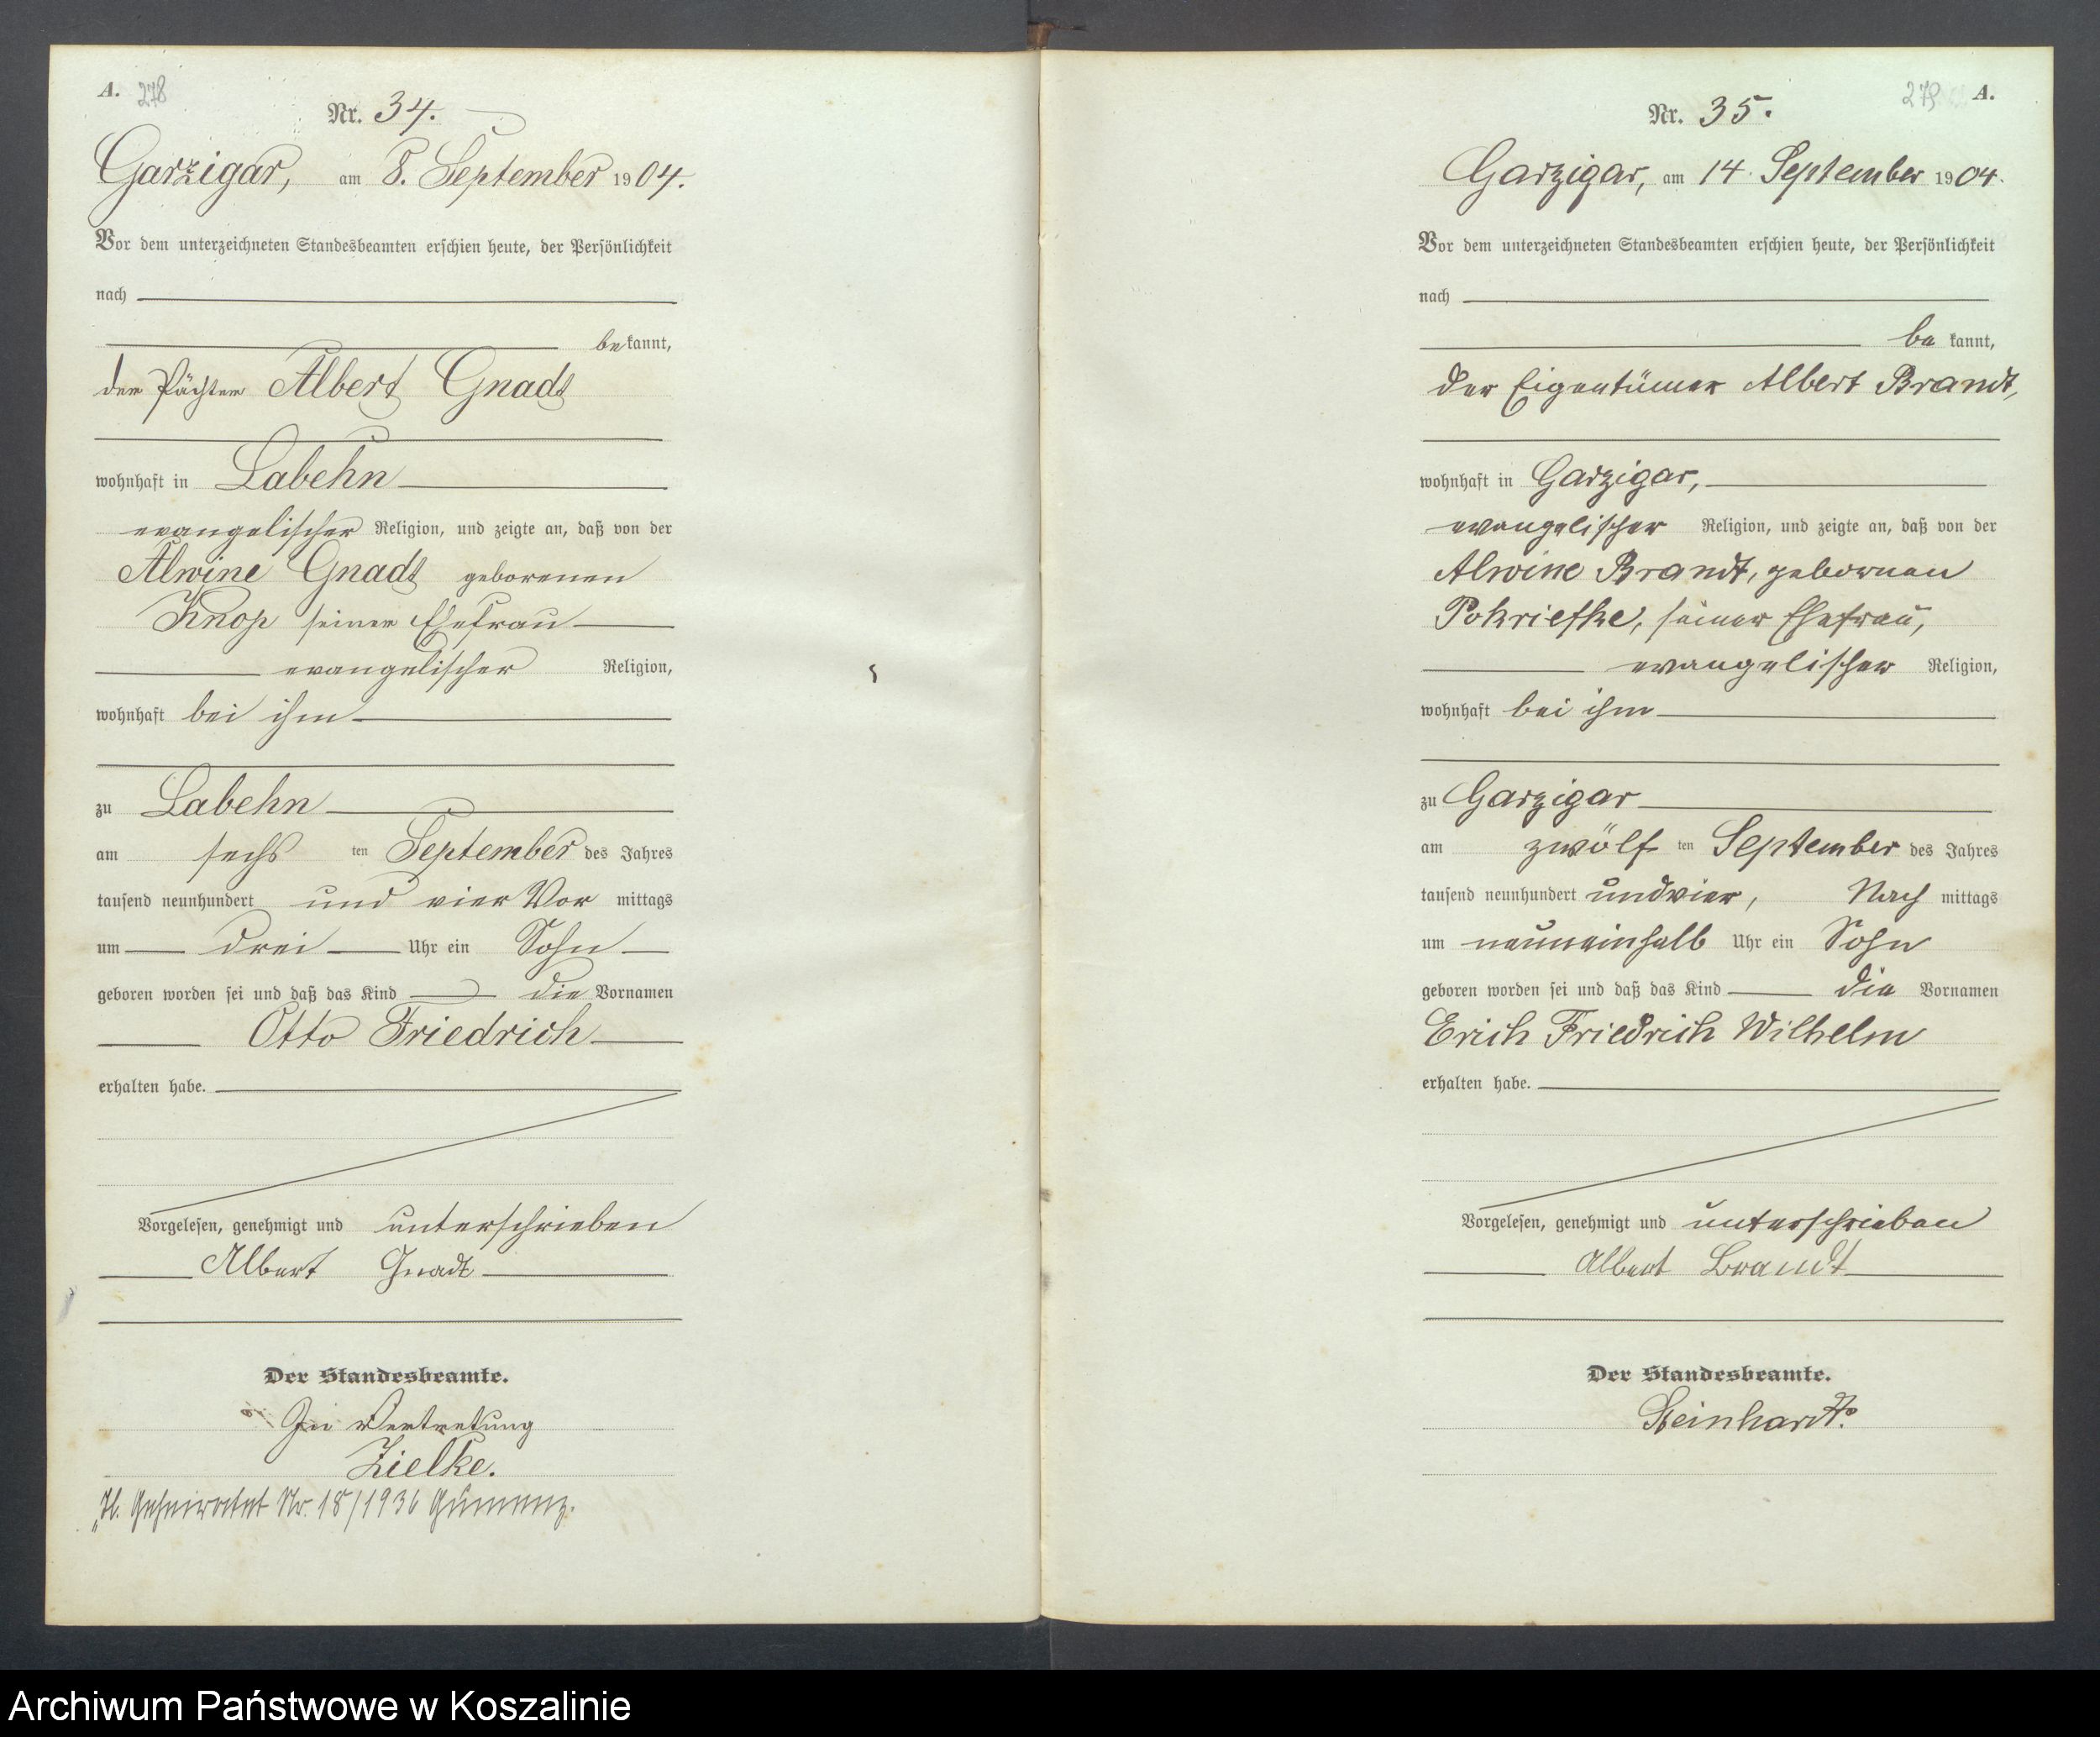 A. 278
Nr. 34.
Garzigar, am 8. September 1904.
Vor dem unterzeichneten Standesbeamten erschien heute, der Persönlichkeit
nach
bekannt,
der Pächter Albert Gnadt
wohnhaft in Labehn
evangelischer Religion, und zeigte an, daß von der
Alwine Gnadt geborenen
Knop seiner Ehefrau
evangelischer Religion,
wohnhaft bei ihm
zu Labehn
am sechs ten September des Jahres
tausend neunhundert und vier Vor mittags
um drei Uhr ein Sohn
geboren worden sei und daß das Kind die Vornamen
Otto Friedrich
erhalten habe.
Vorgelesen, genehmigt und unterschrieben
Albert Gnadt
Der Standesbeamte.
In Vertretung
Zielke.
Geheiratet Nr. 18/1936
279 A.
Nr. 35.
Garzigar, am 14. September 1904.
Vor dem unterzeichneten Standesbeamten erschien heute, der Persönlichkeit
nach
be kannt,
der Eigentümer Albert Brandt,
wohnhaft in Garzigar,
evangelischer Religion, und zeigte an, daß von der
Alwine Brandt, gebornen
Pokriefke, seiner Ehefrau,
evangelischer Religion,
wohnhaft bei ihm
zu Garzigar
am zwölf ten September des Jahres
tausend neunhundert undvier, Nach mittags
um neuneinhalb Uhr ein Sohn
geboren worden sei und daß das Kind die Vornamen
Erich Friedrich Wilhelm
erhalten habe.
Vorgelesen, genehmigt und unterschrieben
Albert Brandt
Der Standesbeamte.
Steinhardt.
Archiwum Państwowe w Koszalinie